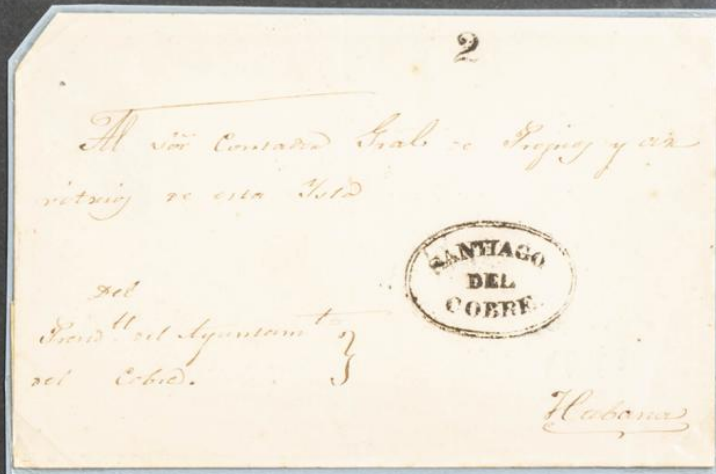 2
Al Sõr Contador Gral de Propios y ar
vitrios de esta Ysla
SANTIAGO
DEL
COBRE.
Del
Presid.te del Ayuntam.to
del Cobre.
Habana